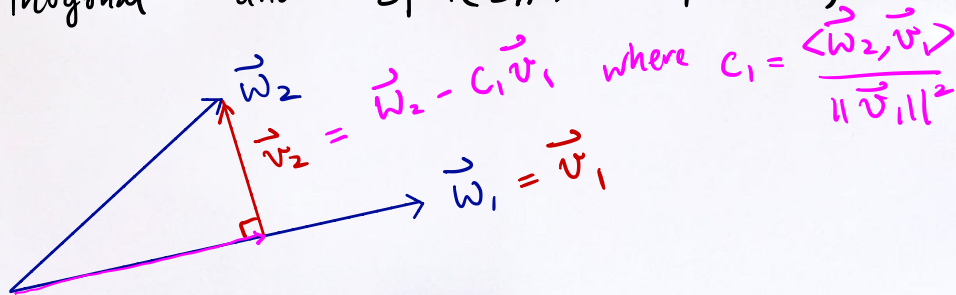 \vec{w}_2
\vec{v}_2 = \vec{w}_2 - c_1\vec{v}_1 where c_1 = \frac{<\vec{w}_2, \vec{v}_1>}{||\vec{v}_1||^2}
\vec{w}_1 = \vec{v}_1